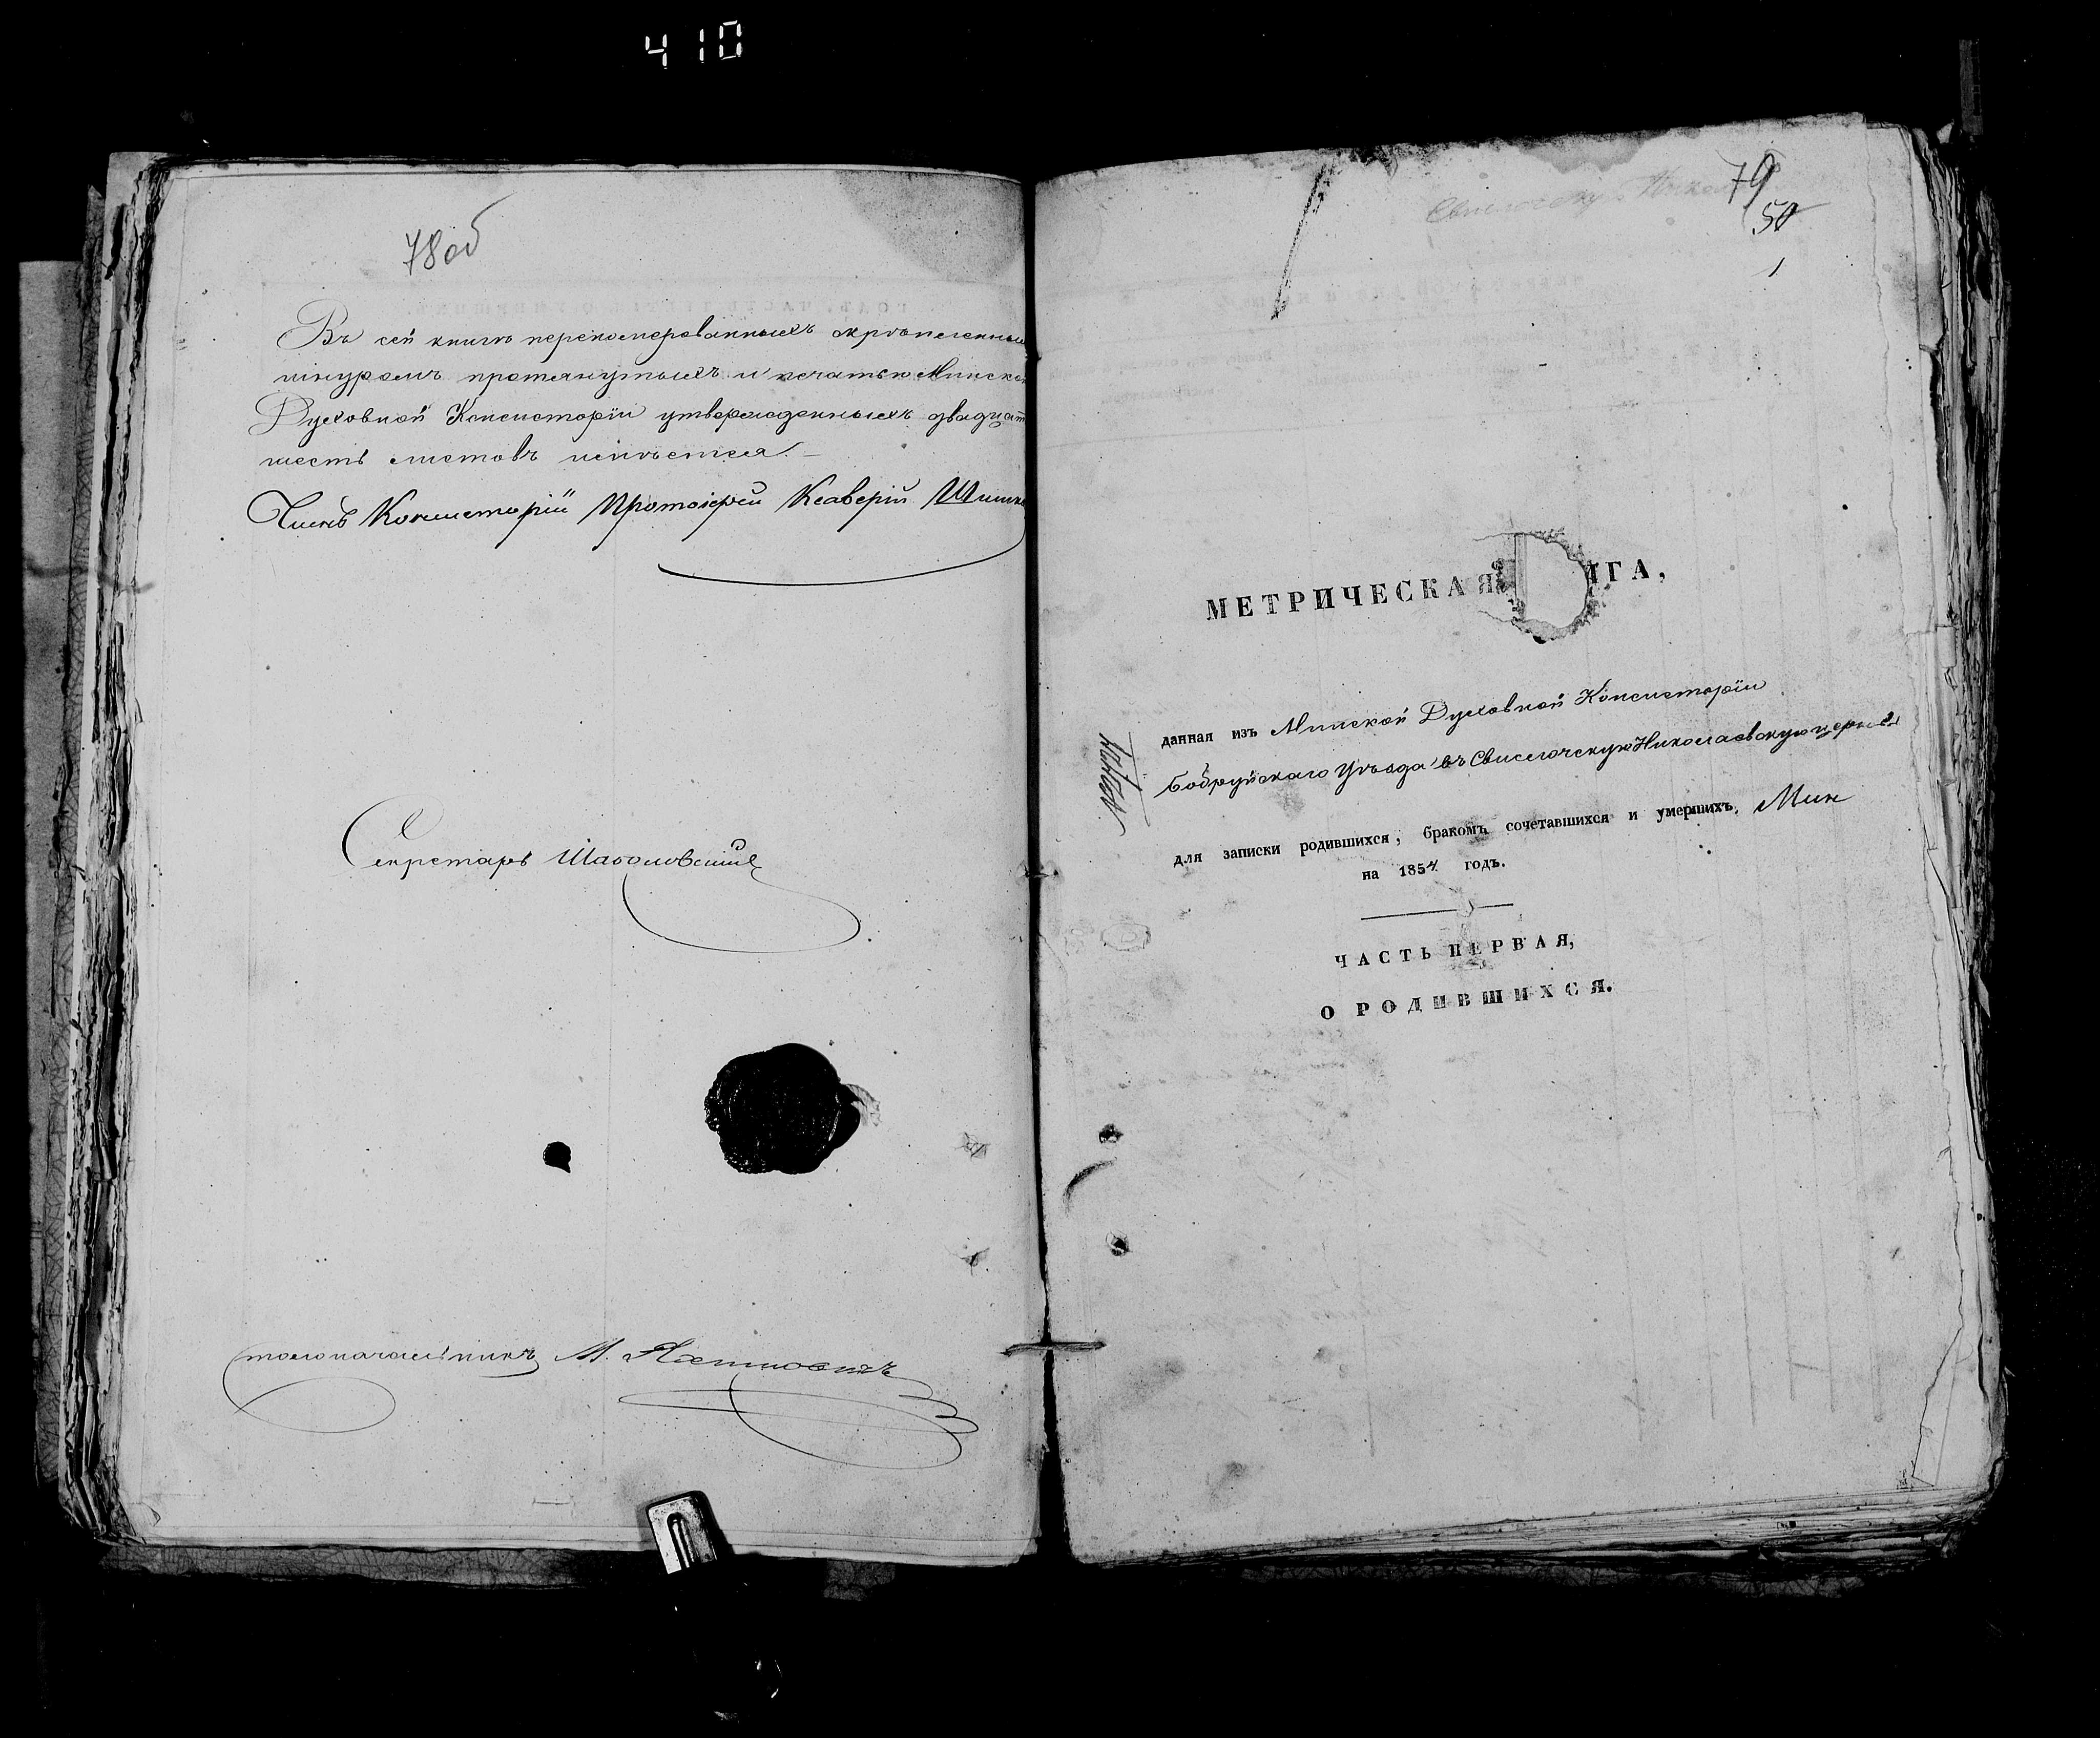 410
78об
Въ сей книгѣ перенумерованныхъ скрѣпленны
шнуромъ протянутыхъ и печатью Минско
Духовной Консисторіи утвержденныхъ двадцат
шесть листовъ имѣется.
Членъ Консисторіи Протоіерей Ксаверій
Секретарь
Столоначальникъ М.
79
50
1
МЕТРИЧЕСКАЯ ИГА,
данная изъ Минской Духовной Консисторіи
Бобруйскаго Уѣзда въ Свислочскую Николаевскую церковь
для записки родившихся, бракомъ сочетавшихся и умершихъ,
на 1854 годъ.
ЧАСТЬ ПЕРВАЯ,
О РОДИВШИХСЯ.